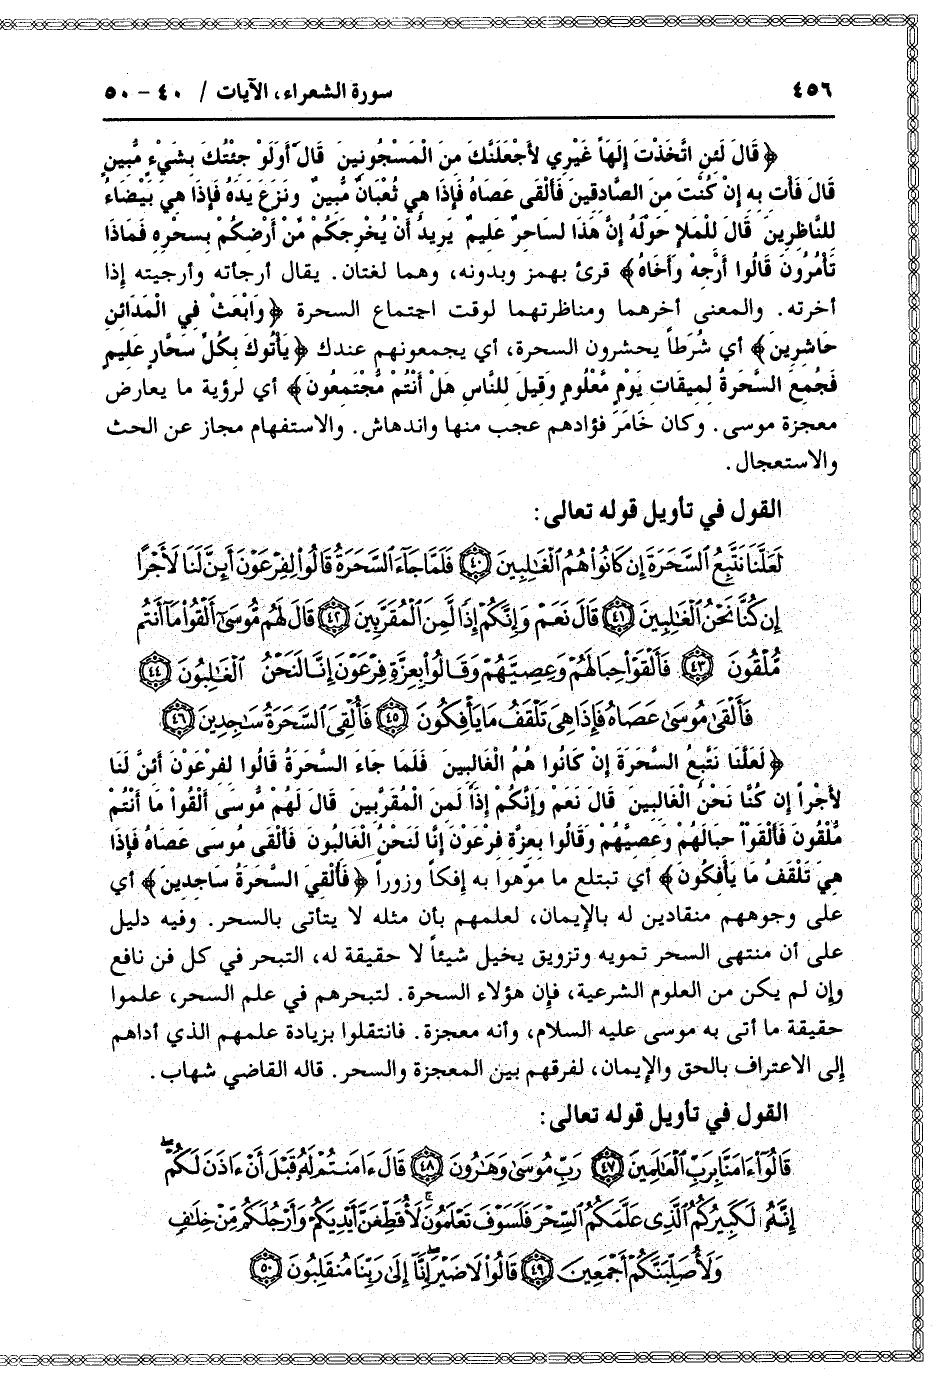 ٤٥٦ سورة الشعراء، الآيات / ٤٠ - ٥٠
﴿قَالَ لَئنِ اتَّخَذْتَ إِلَهَاً غَيْرِي لأجْعَلَنَّكَ مِنَ الْمَسْجُونِينَ قَالَ أَوَلَوْ جِئْتُكَ بِشَيْءٍ مُّبِينٍ
قَالَ فَأْتِ بِهِ إنْ كُنْتَ مِنَ الصَّادِقِينَ فَأَلْقَى عَصَاهُ فَإذَا هِي ثُعْبَانٌ مُّبِينٌ وَنَزَعَ يَدَهُ فَإِذَا هِيَ بَيْضَاءُ
للنَّاظِرِينَ قَالَ لِلْمَلإِ حَوْلَهُ إِنَّ هَذَا لسَاحِرٌ عَلِيمٌ يَرِيدُ أَنْ يُخْرِجَكُمْ مِّنْ أَرْضِكُمْ بِسِحْرِهِ فَمَاذَا
تَأْمُرُونَ قَالُوا أَرْجِهْ وَأَخَاهُ﴾ قرئ بهمز وبدونه، وهما لغتان. يقال أرجأته وأرجيته إذا
أخرته. والمعنى أخرهما ومناظرتهما لوقت اجتماع السحرة ﴿وَابْعَثْ فِي الْمَدَائِنِ
حَاشِرِينَ﴾ أي شُرَطاً يحشرون السحرة، أي يجمعونهم عندك ﴿يَأْتُوكَ بِكُلِّ سَحَّارٍ عَلِيمٍ
فَجُمِعَ السَّحَرَةُ لِمِيقَاتِ يَوْمٍ مَّعْلُومٍ وَقِيلَ لِلنَّاسِ هَلْ أَنْتُمْ مُّجْتَمِعُونَ﴾ أي لرؤية ما يعارض
معجزة موسى. وكان خَامَرَ فؤادهم عجب منها واندهاش. والاستفهام مجاز عن الحث
والاستعجال.
القول في تأويل قوله تعالى:
لَعَلَّنَا نَتَّبِعُ ٱلسَّحَرَةَ إِن كَانُوا۟ هُمُ ٱلْغَٰلِبِينَ ٤٠ فَلَمَّا جَآءَ ٱلسَّحَرَةُ قَالُوا۟ لِفِرْعَوْنَ أَئِنَّ لَنَا لَأَجْرًا
إِن كُنَّا نَحْنُ ٱلْغَٰلِبِينَ ٤١ قَالَ نَعَمْ وَإِنَّكُمْ إِذًا لَّمِنَ ٱلْمُقَرَّبِينَ ٤٢ قَالَ لَهُم مُّوسَىٰٓ أَلْقُوا۟ مَآ أَنتُم
مُّلْقُونَ ٤٣ فَأَلْقَوْا۟ حِبَالَهُمْ وَعِصِيَّهُمْ وَقَالُوا۟ بِعِزَّةِ فِرْعَوْنَ إِنَّا لَنَحْنُ ٱلْغَٰلِبُونَ ٤٤
فَأَلْقَىٰ مُوسَىٰ عَصَاهُ فَإِذَا هِىَ تَلْقَفُ مَا يَأْفِكُونَ ٤٥ فَأُلْقِىَ ٱلسَّحَرَةُ سَٰجِدِينَ ٤٦
﴿لَعَلَّنَا نَتَّبِعُ السَّحَرَةَ إِن كَانُوا هُمُ الْغَالِبِينَ فَلَمَا جَاءَ السَّحَرَةُ قَالُوا لِفِرْعَوْنَ أَئنَّ لَنَا
لأَجْراً إن كُنَّا نَحْنُ الْغَالِبِينَ قَالَ نَعَمْ وَإِنَّكُمْ إِذَاً لَّمِنَ الْمُقَرَّبِينَ قَالَ لَهُمْ مُّوسَى أَلْقُواْ مَا أَنْتُمْ
مُّلْقُونَ فَأَلْقَوْاْ حِبَالَهُمْ وَعِصِيَّهُمْ وَقَالُوا بِعِزَّةِ فِرْعَوْنَ إِنَّا لَنَحْنُ الْغَالِبُونَ فَأَلْقَى مُوسَى عَصَاهُ فَإِذَا
هِيَ تَلْقَفُ مَا يَأْفِكُونَ﴾ أي تبتلع ما موّهوا به إفكاً وزوراً ﴿فَأُلْقِيَ السَّحَرَةُ سَاجِدِينَ﴾ أي
على وجوههم منقادين له بالإيمان، لعلمهم بأن مثله لا يتأتى بالسحر. وفيه دليل
على أن منتهى السحر تمويه وتزويق يخيل شيئاً لا حقيقة له، التبحر في كل فن نافع
وإن لم يكن من العلوم الشرعية، فإن هؤلاء السحرة. لتبحرهم في علم السحر، علموا
حقيقة ما أتى به موسى عليه السلام، وأنه معجزة. فانتقلوا بزيادة علمهم الذي أداهم
إلى الاعتراف بالحق والإيمان، لفرقهم بين المعجزة والسحر. قاله القاضي شهاب.
القول في تأويل قوله تعالى:
قَالُوٓا۟ ءَامَنَّا بِرَبِّ ٱلْعَٰلَمِينَ ٤٧ رَبِّ مُوسَىٰ وَهَٰرُونَ ٤٨ قَالَ ءَامَنتُمْ لَهُۥ قَبْلَ أَنْ ءَاذَنَ لَكُمْ ۖ
إِنَّهُۥ لَكَبِيرُكُمُ ٱلَّذِى عَلَّمَكُمُ ٱلسِّحْرَ فَلَسَوْفَ تَعْلَمُونَ ۚ لَأُقَطِّعَنَّ أَيْدِيَكُمْ وَأَرْجُلَكُم مِّنْ خِلَٰفٍ
وَلَأُصَلِّبَنَّكُمْ أَجْمَعِينَ ٤٩ قَالُوا۟ لَا ضَيْرَ ۖ إِنَّآ إِلَىٰ رَبِّنَا مُنقَلِبُونَ ٥٠